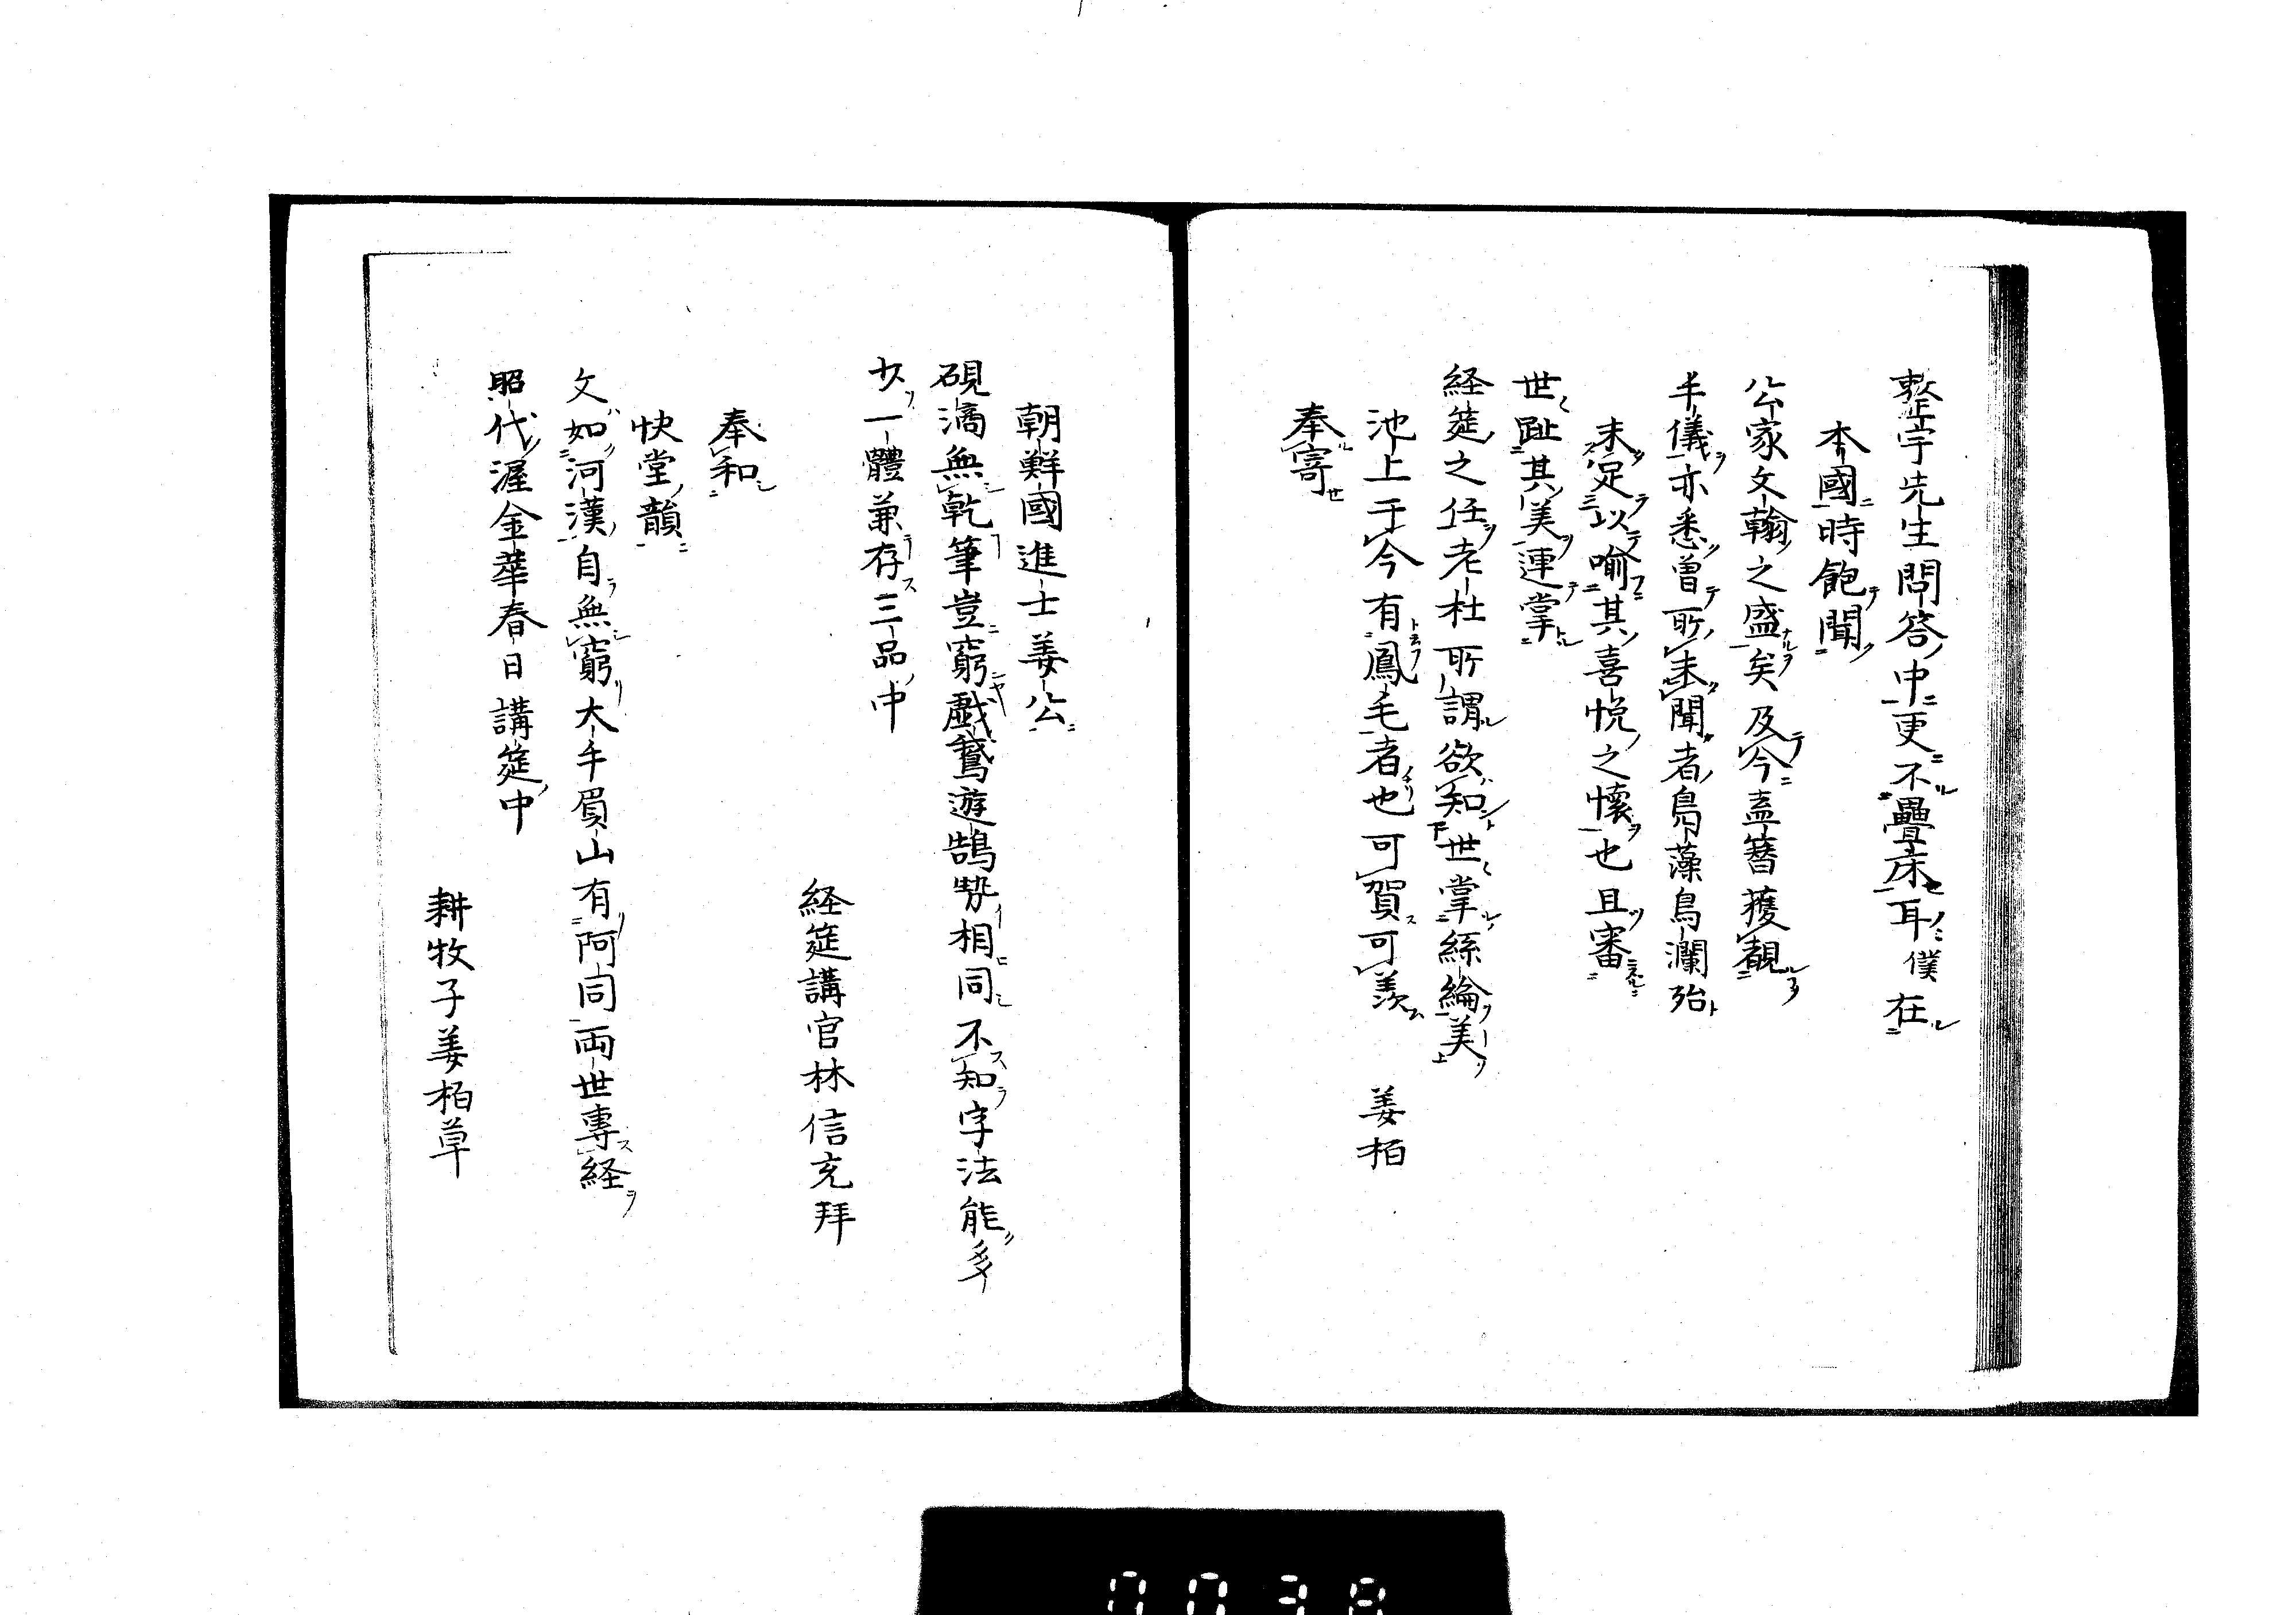 整宇先生問答中更不疊床耳僕在
本國時飽聞
公家文翰之盛矣及今盍簪獲覩
手儀亦悉曽所未聞者鳬藻鳥瀾殆
未足以喻其喜悦之懷也且審
世趾其美運掌
経筵之任老杜所謂欲知世掌絲綸美
池上于今有鳳毛者也可賀可羨 姜栢
奉寄
朝鮮國進士姜公
硯滴無乾筆豈窮戯鵞遊鵠勢相同不知字法能多
少一體兼存三品中
経筵講官林信充拜
奉和
快堂韻
文如河漢自無窮大手眉山有阿同両世專経
昭代渥金華春日講筵中
耕牧子姜栢草